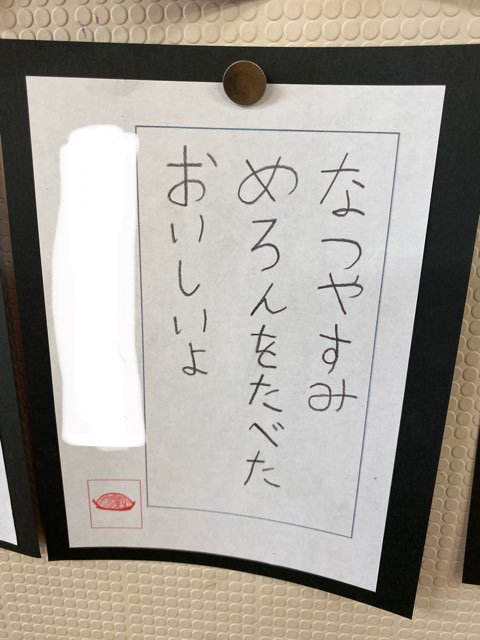 なつやすみ
めろんをたべた
おいしいよ